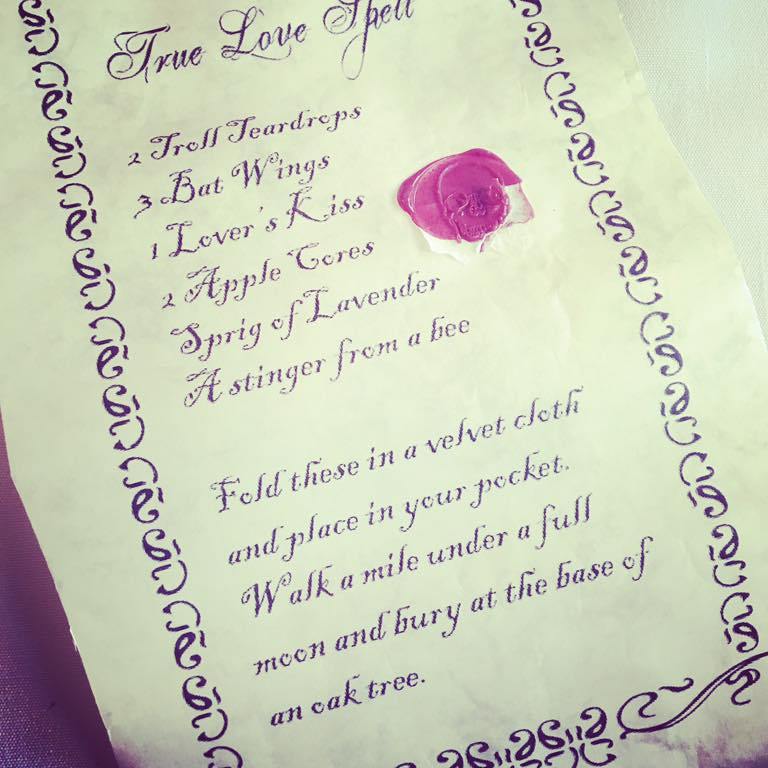 True Love Spell
2 Troll Teardrops
3 Bat Wings
1 Lover's Kiss
2 Apple Cores
Sprig of Lavender
A stinger from a bee
Fold these in a velvet cloth
and place in your pocket.
Walk a mile under a full
moon and bury at the base of
an oak tree.